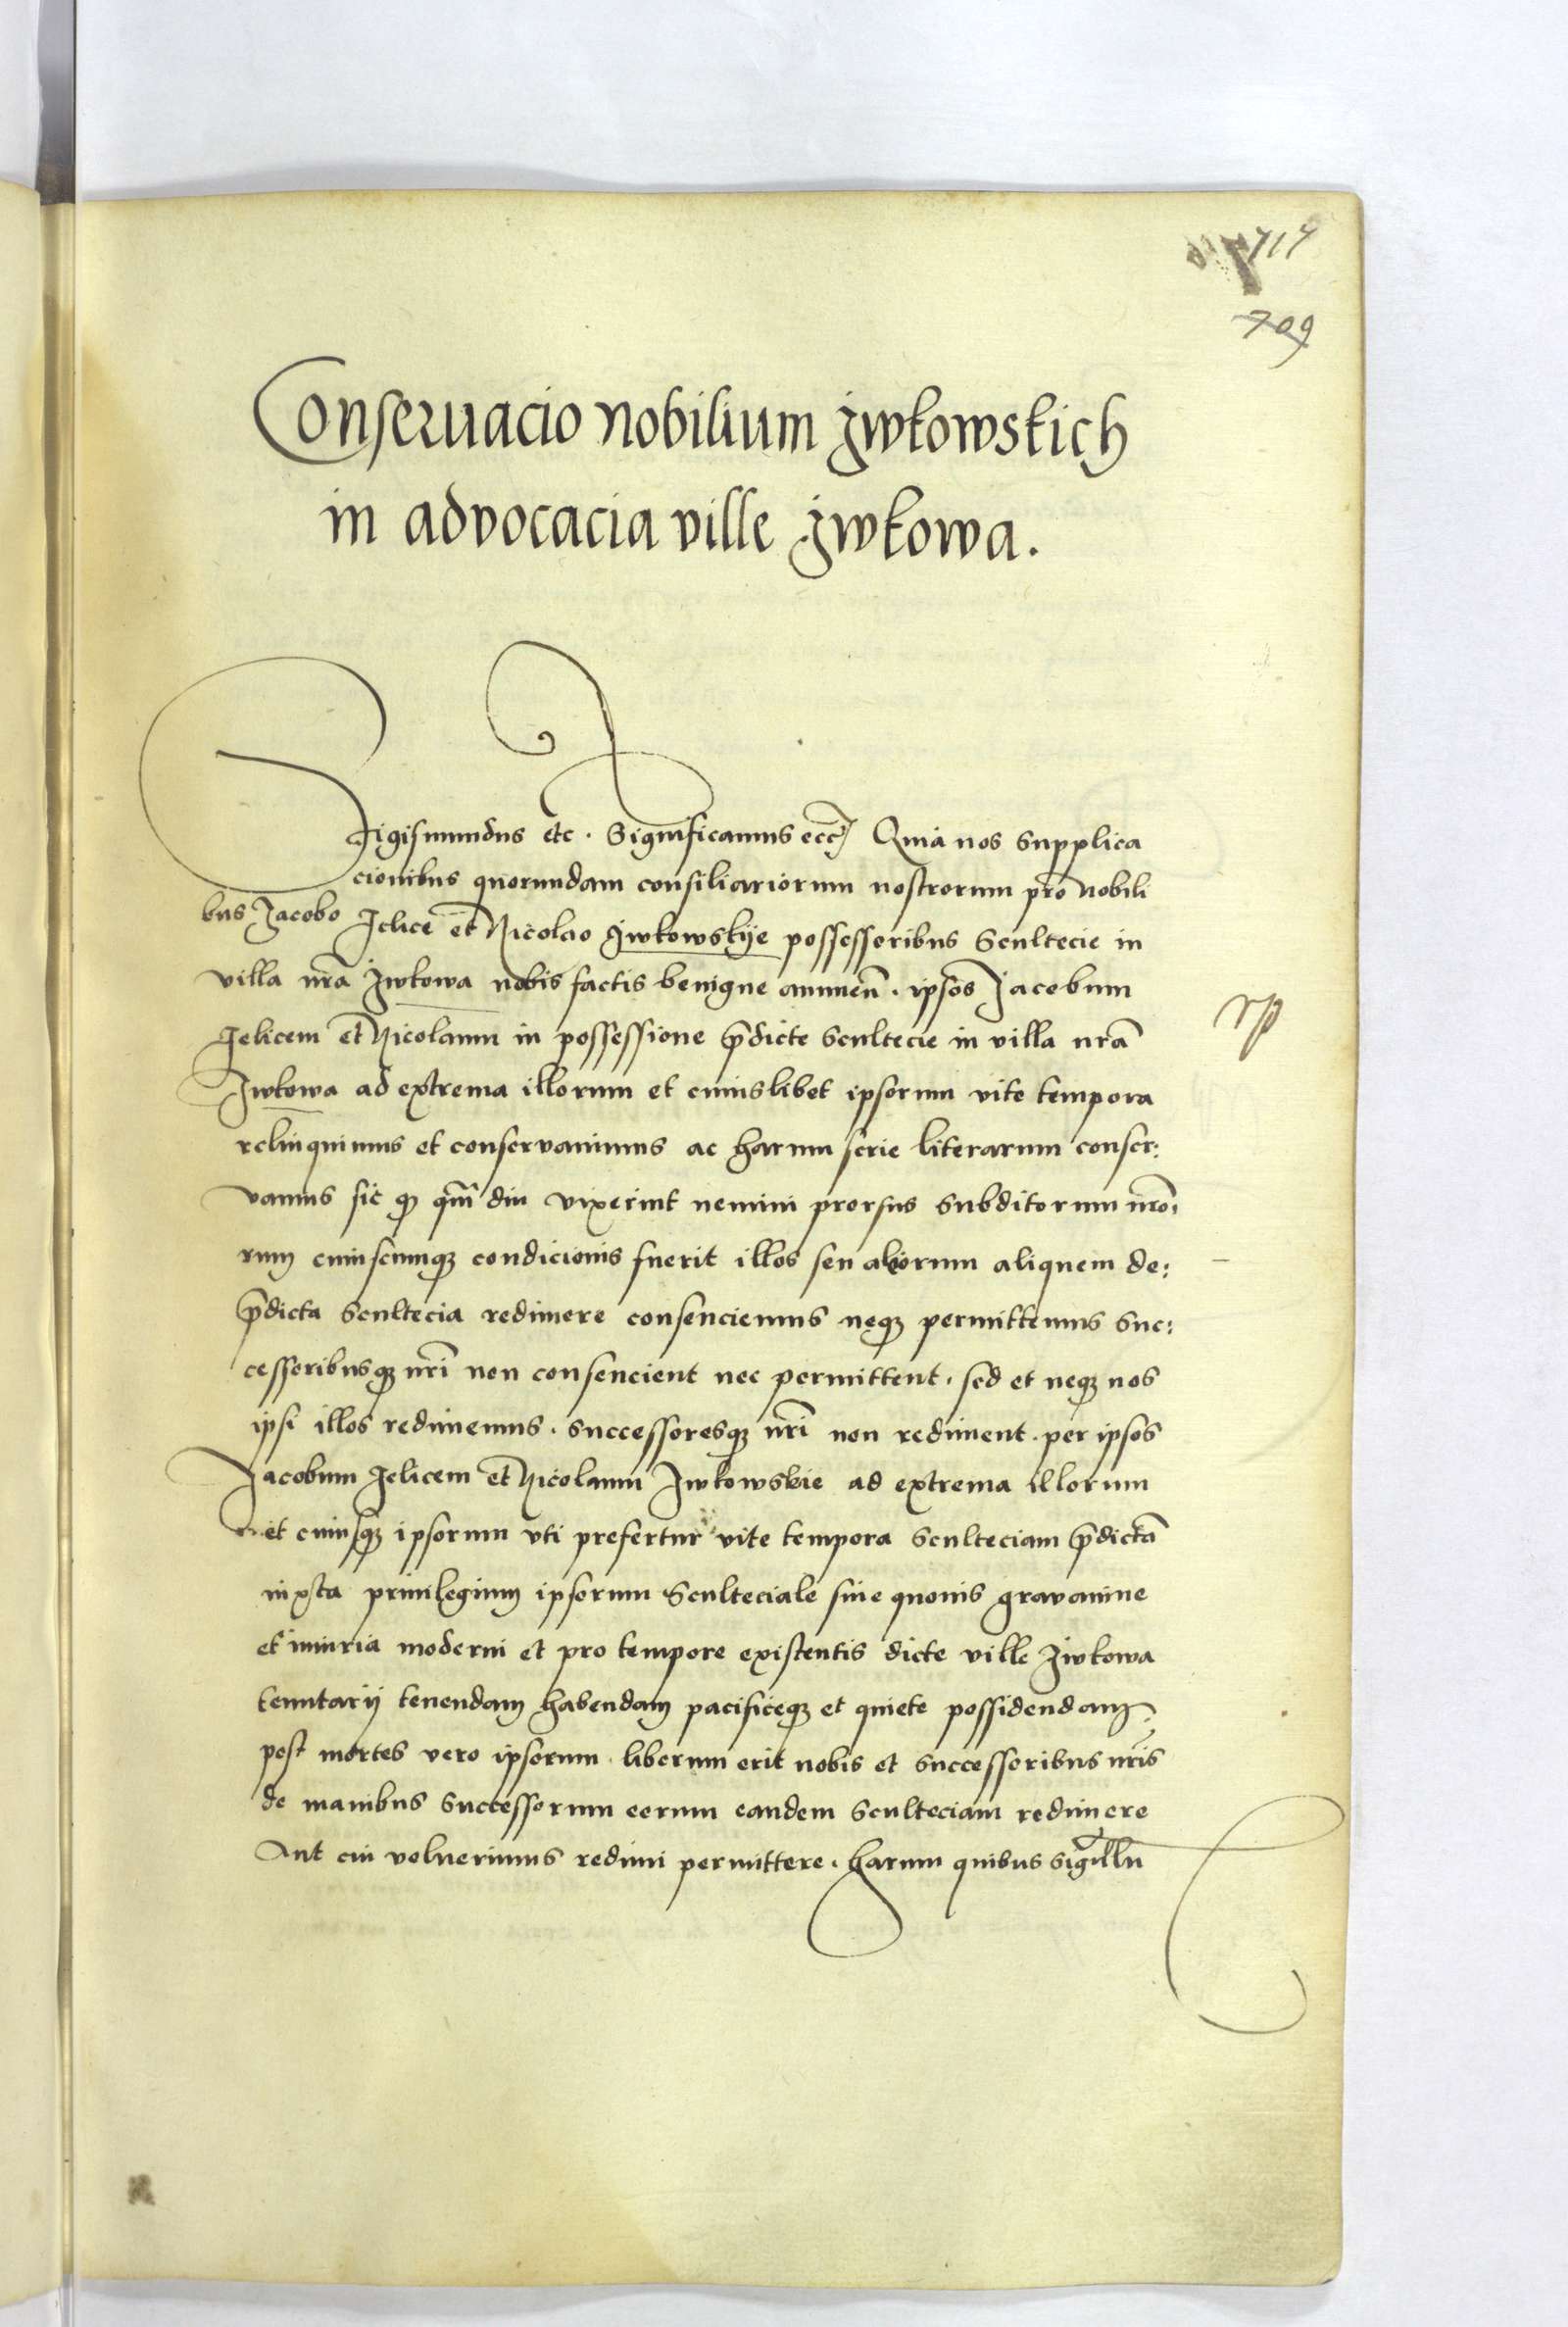 717
709
Conseruacio nobilium Jwkowskich
in advocacia ville Jwkowa.
Sigismundus etc. Significamus etc. Quia nos supplica
cionibus quorundam consiliariorum nostrorum pro nobili
bus Jacobo Jelice et Nicolao Jwkowskije possessoribus Scultecie in
villa nrã Jwkowa nobis factis benigne annuen̄. ipsos Jacobum
Jelicem et Nicolaum in possessione p̄dicte Scultecie in villa nrã
Jwkowa ad extrema illorum et cuiuslibet ipsorum vite tempora
relinquimus et conservavimus ac harum serie literarum conser:
vamus sic qꝫ qm̄ diu vixerint nemini prorsus subditorum nrõ
rum cuiuscunqꝫ condicionis fuerit illos seu aliorum aliquem de:
p̄dicta Scultecia redimere consenciemus neqꝫ permittemus suc:
cessoribusqꝫ nrĩ non consencient nec permittent. sed et neqꝫ nos
ipsi illos redimemus. successoresqꝫ nrĩ non rediment. per ipsos
Jacobum Jelicem et Nicolaum Jwkowskie ad extrema illorum
et cuiusqꝫ ipsorum vti prefertur vite tempora Sculteciam p̄dictã
iuxta privilegium ipsorum Sculteciale sine quovis gravamine
et iniuria moderni et pro tempore existentis dicte ville Jwkowa
tenutarij tenendam habendam pacificeqꝫ et quiete possidendam
post mortes vero ipsorum liberum erit nobis et successoribus nrĩs
de manibus successorum eorum eandem Sculteciam redimere
Aut cui voluerimus redimi permittere. harum quibus sigillũ